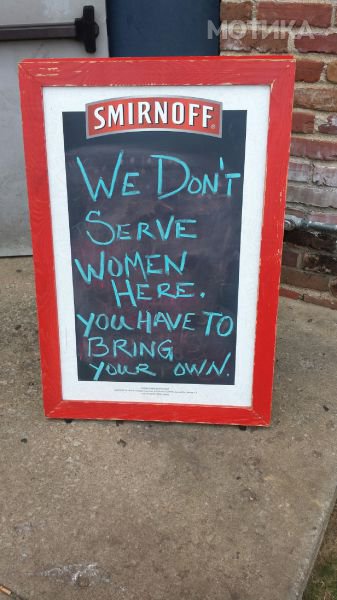 МОТИКА
SMIRNOFF
WE DON'T
SERVE
WOMEN
HERE.
YOU HAVE TO
BRING
YOUR OWN.